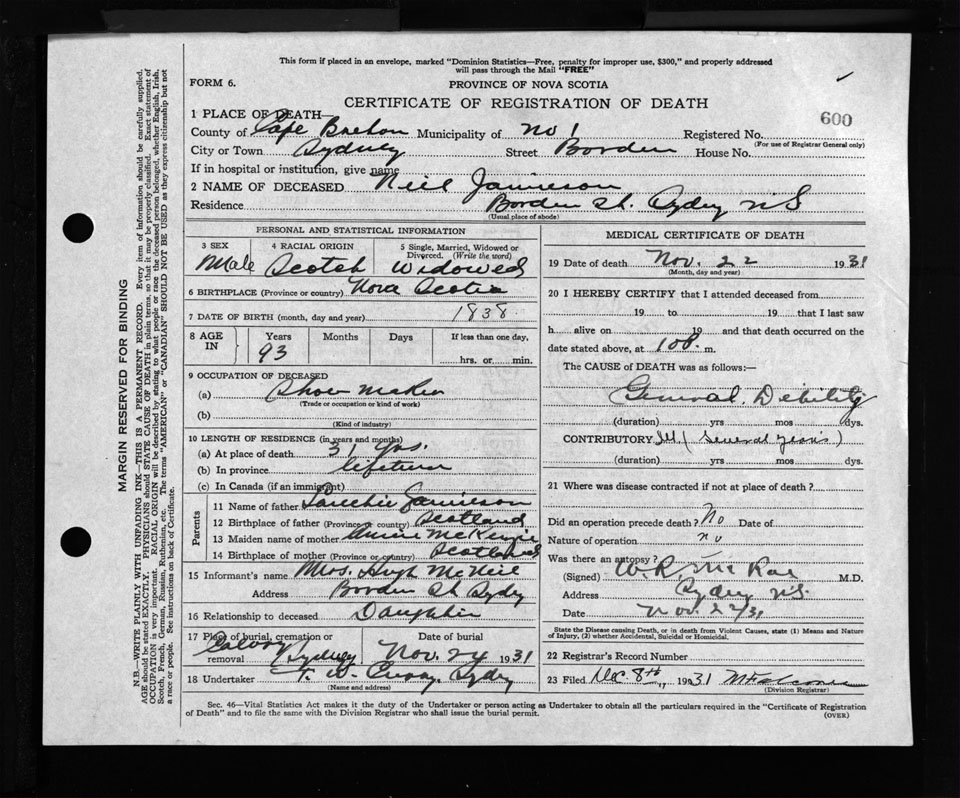 This form if placed in an envelope, marked "Dominion Statistics—Free, penalty for improper use, $300," and properly addressed
will pass through the Mail "FREE"
FORM 6. PROVINCE OF NOVA SCOTIA
CERTIFICATE OF REGISTRATION OF DEATH
600
1 PLACE OF DEATH—
County of Cape Breton Municipality of No 1 Registered No.
(For use of Registrar General only)
City or Town Sydney Street Borden House No.
If in hospital or institution, give name
2 NAME OF DECEASED Neil Jamieson
Residence Borden St. Sydney N S
(Usual place of abode)
PERSONAL AND STATISTICAL INFORMATION
3 SEX 4 RACIAL ORIGIN 5 Single, Married, Widowed or Divorced. (Write the word)
Male Scotch Widowed
6 BIRTHPLACE (Province or country) Nova Scotia
7 DATE OF BIRTH (month, day and year) 1838
8 AGE IN Years Months Days If less than one day,
93 hrs. or min.
9 OCCUPATION OF DECEASED
(a) Shoe maker
(Trade or occupation or kind of work)
(b)
(Kind of industry)
10 LENGTH OF RESIDENCE (in years and months)
(a) At place of death 31 yrs.
(b) In province lifetime
(c) In Canada (if an immigrant)
Parents
11 Name of father Jamieson
12 Birthplace of father (Province or country) Scotland
13 Maiden name of mother Annie McKenzie
14 Birthplace of mother (Province or country) Scotland
15 Informant's name Mrs. Hugh McNeil
Address Borden St Sydney
16 Relationship to deceased Daughter
17 Place of burial, cremation or removal Date of burial
Calvary Sydney Nov. 24 1931
18 Undertaker T. W. Curry, Sydney
(Name and address)
MEDICAL CERTIFICATE OF DEATH
19 Date of death Nov. 22 1931
(Month, day and year)
20 I HEREBY CERTIFY that I attended deceased from
19 to 19 that I last saw
h alive on 19 and that death occurred on
date stated above, at 10 m.
The CAUSE of DEATH was as follows:—
General Debility
(duration) yrs mos dys.
CONTRIBUTORY Ill (several years)
(duration) yrs. mos dys.
21 Where was disease contracted if not at place of death?
Did an operation precede death? No Date of
Nature of operation no
Was there an autopsy?
(Signed) W. R. McRae M.D.
Address Sydney N.S.
Date Nov. 22/31
State the Disease causing Death, or in death from Violent Causes, state (1) Means and Nature
of Injury, (2) whether Accidental, Suicidal or Homicidal.
22 Registrar's Record Number
23 Filed Dec 8th, 1931
(Division Registrar)
Sec. 46—Vital Statistics Act makes it the duty of the Undertaker or person acting as Undertaker to obtain all the particulars required in the "Certificate of Registration
of Death" and to file the same with the Division Registrar who shall issue the burial permit.
(OVER)
MARGIN RESERVED FOR BINDING
N.B.—WRITE PLAINLY WITH UNFADING INK—THIS IS A PERMANENT RECORD. Every item of information should be carefully supplied.
AGE should be stated EXACTLY. PHYSICIANS should STATE CAUSE OF DEATH in plain terms, so that it may be properly classified. Exact statement of
OCCUPATION is very important. RACIAL ORIGIN will be described by stating to what people or race the deceased person belonged, whether English, Irish,
Scotch, French, German, Russian, Ruthenian, etc. The terms "AMERICAN" or "CANADIAN" SHOULD NOT BE USED as they express citizenship but not
a race or people. See instructions on back of Certificate.